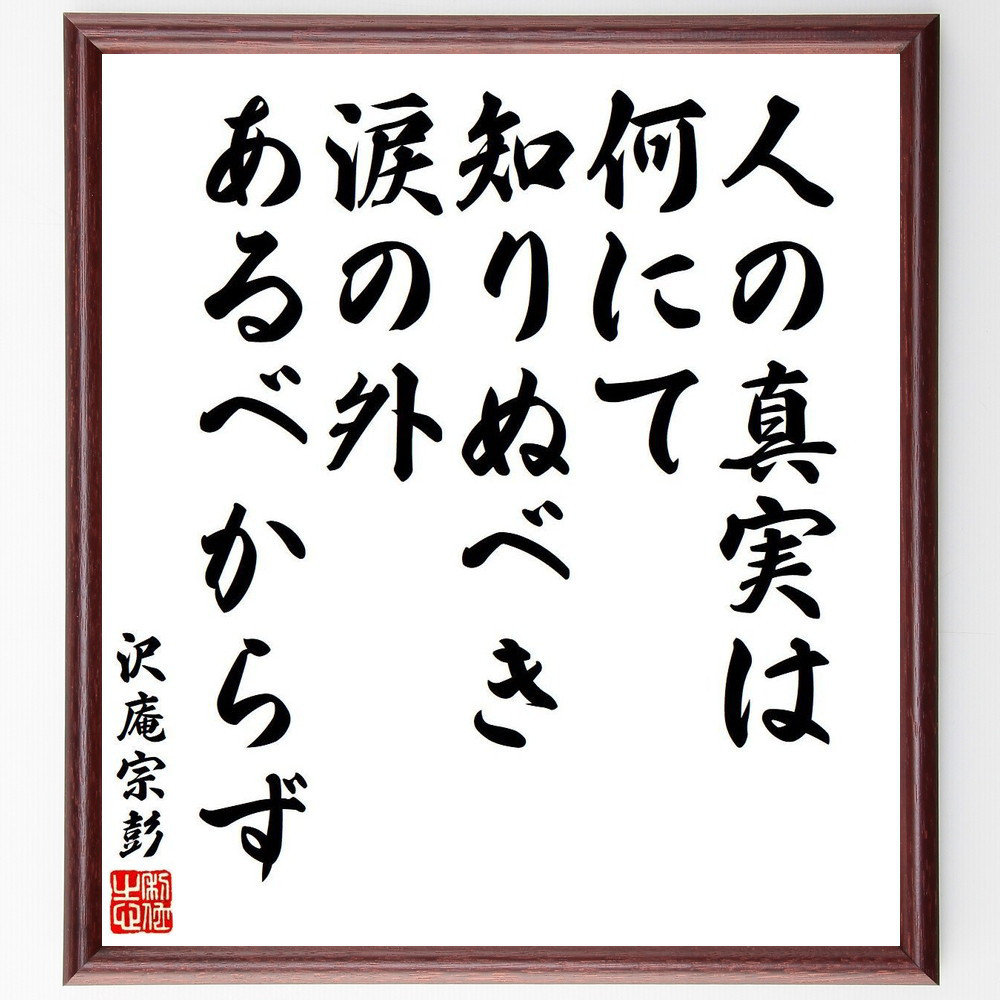 人の真実は
何にて
知りぬべき
涙の外
あるべからず
沢庵宗彭